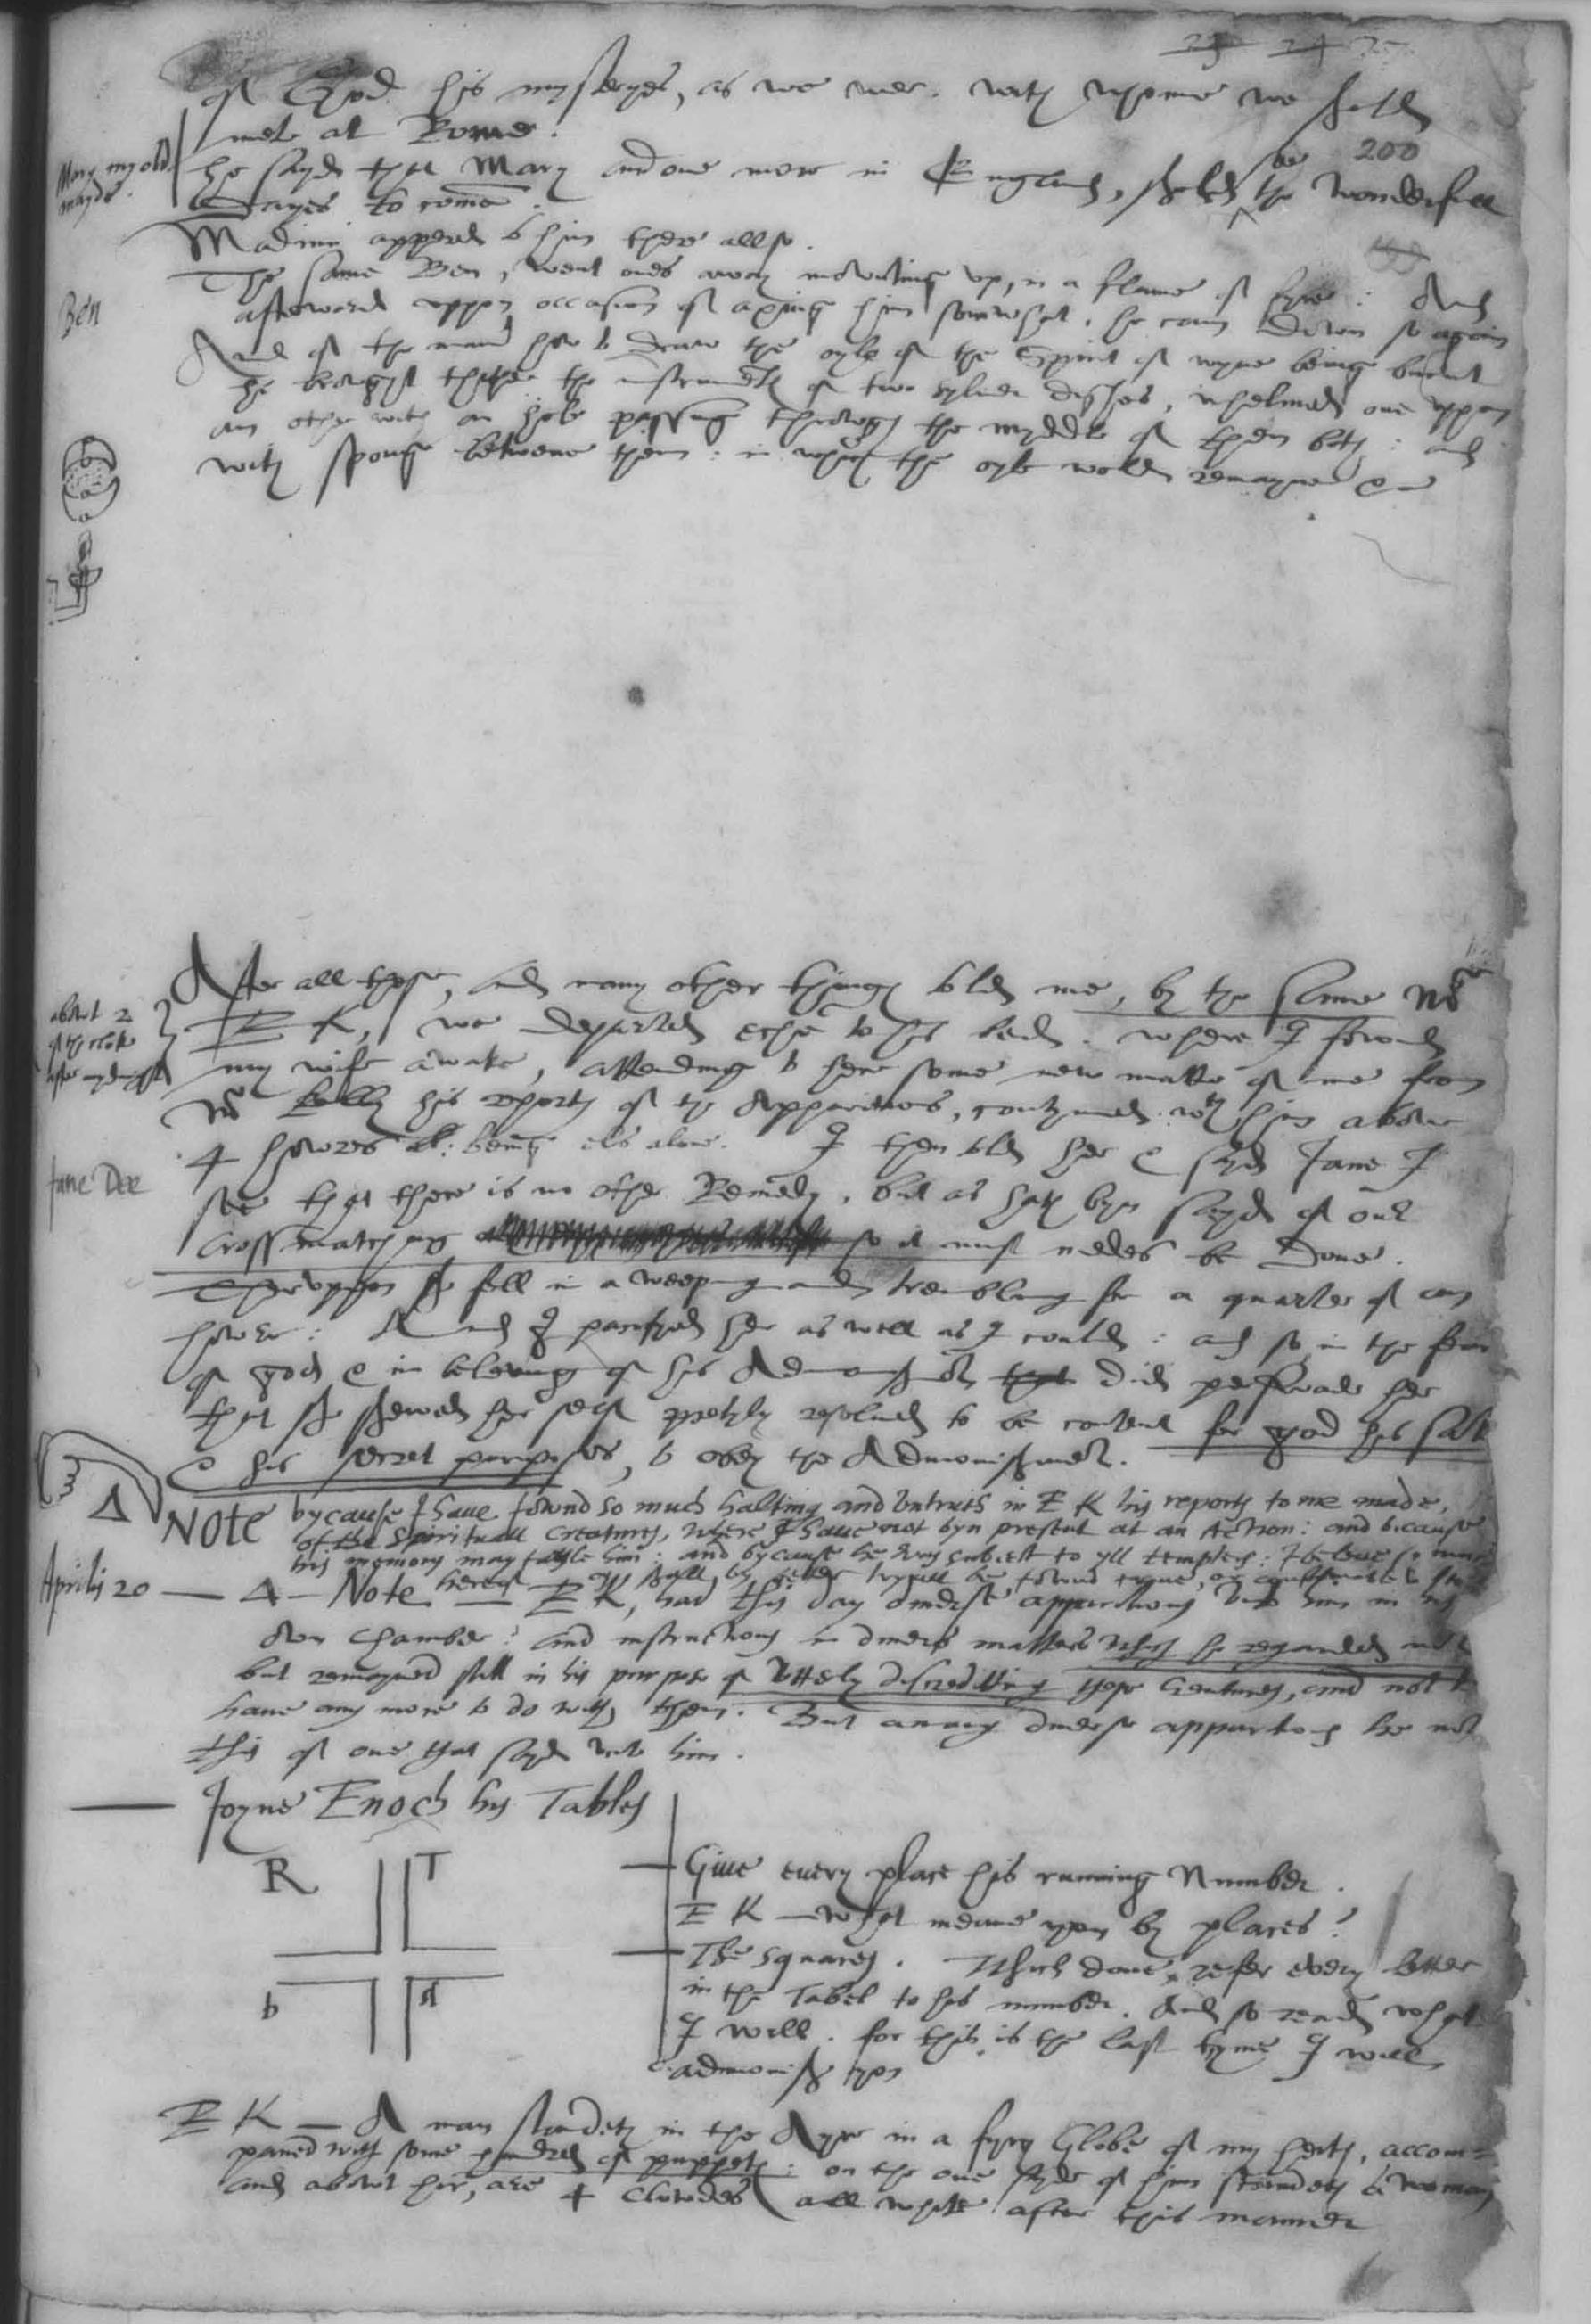 23 24 25
of God his mysteryes, as we wer. with whome we shold
mete at Rome.
200
Mary my old mayde.
he sayd that Mary and one more in England, shold be the wonderfull
Dayes to come.
Madimi appered to him there allso.
Ben
The same Ben, went ones away mownting up, in a flame of fyre: And
afterward uppon occasion of axing him somwhat, he cam down so again
And of the maner how to draw the oyle of the Spirit of wyne being burnt
he browght thither the instruments of two sylver dishes, whelmed one uppon
an other with an hole passing throwgh the myddle of them both: and
with sponge betwene them: in which the oyle wold remayne &c
abowt 2 of the clok after mydnight
After all these, and many other things told me, by the same Mr
EK, we departed eche to his bed. where I fownd
my wife awake, attending to here some new matter of me from
Mr Kelly his reports of the Apparitions, contynued with him above
4 howres being els alone. I then told her & sayd Jane I
Jane Dee
see that there is no other Remedy, but as hath byn sayd of our
Cross matching so it must nedes be done.
Theruppon she fell in a weeping and trembling for a quarter of an
howr: And I pacifyed her as well as I could: and so in the fear
of god & in beleving of his Admonishment did perswade her
that she shewed her self pretyly resolved to be content for god his sake
& his secret purposes, to obey the Admonishment.
Δ NOte bycause I have fownd so much halting and untruth in E K his reports to me made,
of the Spirituall Creatures, where I have not byn present at an Action: and bicause
his memory may fayle him: and bycause he was subiect to yll tempters: I beleve so much
hereof as shall by better tryall be fownd trew, or
Aprilis 20 — Δ — Note — EK, had this day diverse apparitions unto him in his
own Chamber: and instructions in divers matters which he regarded not
but remayned still in his purpose of utterly discrediting those Creatures, and not to
have any more to do with them. But among diverse apparitions he noted
this of one that sayd unto him.
— Joyne Enoch his Tables
R T
b d
— Give every place his running Number.
E K — What meane you by places?
— The squares. Which done, refer every letter
in the Tabel to his number. And so read what
I will. for this is the last tyme I will
admonish you
E K — A man standeth in the Ayre in a fyry Globe of my heith, accom=
panied with some hundred of puppets: on the one syde of him standeth a woman
and abowt her, are 4 Clowdes all white after this manner